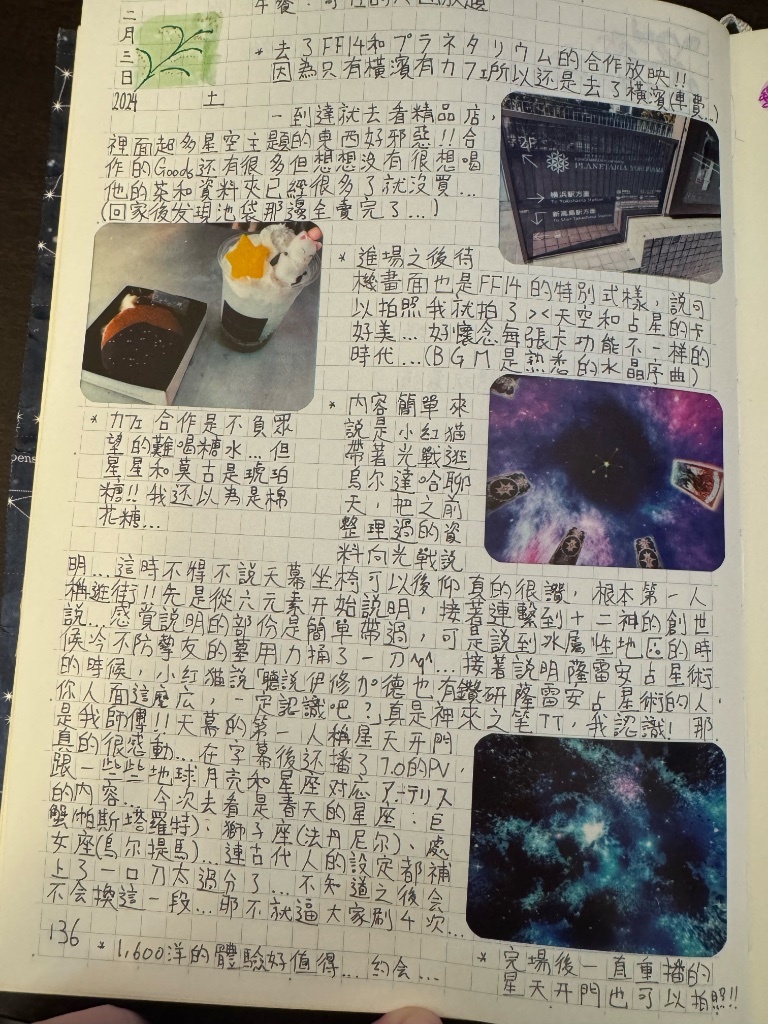 午餐：
二月三日
2024 土
* 去了FF14和プラネタリウムの合作放映!!
因為只有橫濱有カフェ所以还是去了橫濱(車費…)
一到達就去看精品店，
裡面超多星空主題的東西好邪惡!!合
作的Goods还有很多但想想没有很想喝
他的茶和資料夾已經很多了就沒買…
(回家後发現池袋那邊全賣完了…)
2F
PLANETARIA YOKOHAMA
横浜駅方面
To Yokohama Station
新高島駅方面
* 進場之後待
機畫面也是FF14的特別式樣，說可
以拍照我就拍了><天空和占星的卡
好美…好懷念每張卡功能不一樣的
時代…(BGM是熟悉的水晶序曲)
* カフェ合作是不負眾
望的難喝糖水…但
星星和莫古是琥珀
糖!!我还以為是棉
花糖…
* 内容簡單來
說是小紅猫
帶著光戰逛
烏尔達哈聊
天，把之前
整理過的資
料向光戰說
pens
明…這時不得不說天幕坐椅可以後仰真的很讚，根本第一人
稱逛街!!先是從六元素开始説明，接著連繫到十二神的創世
說…感覚説明的部份是簡單帶過，可是説到水屬性地區的時
候冷不防摯友的墓用力捅了一刀…接著説明薩雷安占星術
的時候，小紅猫説「聽説伊修加德也有鑽研薩雷安占星術的人，
你人面這麼広，一定認識吧？真是神來之笔TT，我認識！那
是我師傅!!天幕的第一人稱星天开門
真的很感動…在字幕後还播了7.0的PV，
跟一些些地球月亮和星座对应アーテリス
的内容…今次去看是春天的星座：巨
蟹(帕斯塔羅特)、獅子座(法丹尼尔)、處
女座(烏尔提馬)…連古代人的設定都補
上了一口刀太過分了…不知道之後会
不会換這一段…那不就逼大家刷4次…
136
* 1,600洋的體驗好值得…約会…
* 完場後一直重播的
星天开門也可以拍照!!